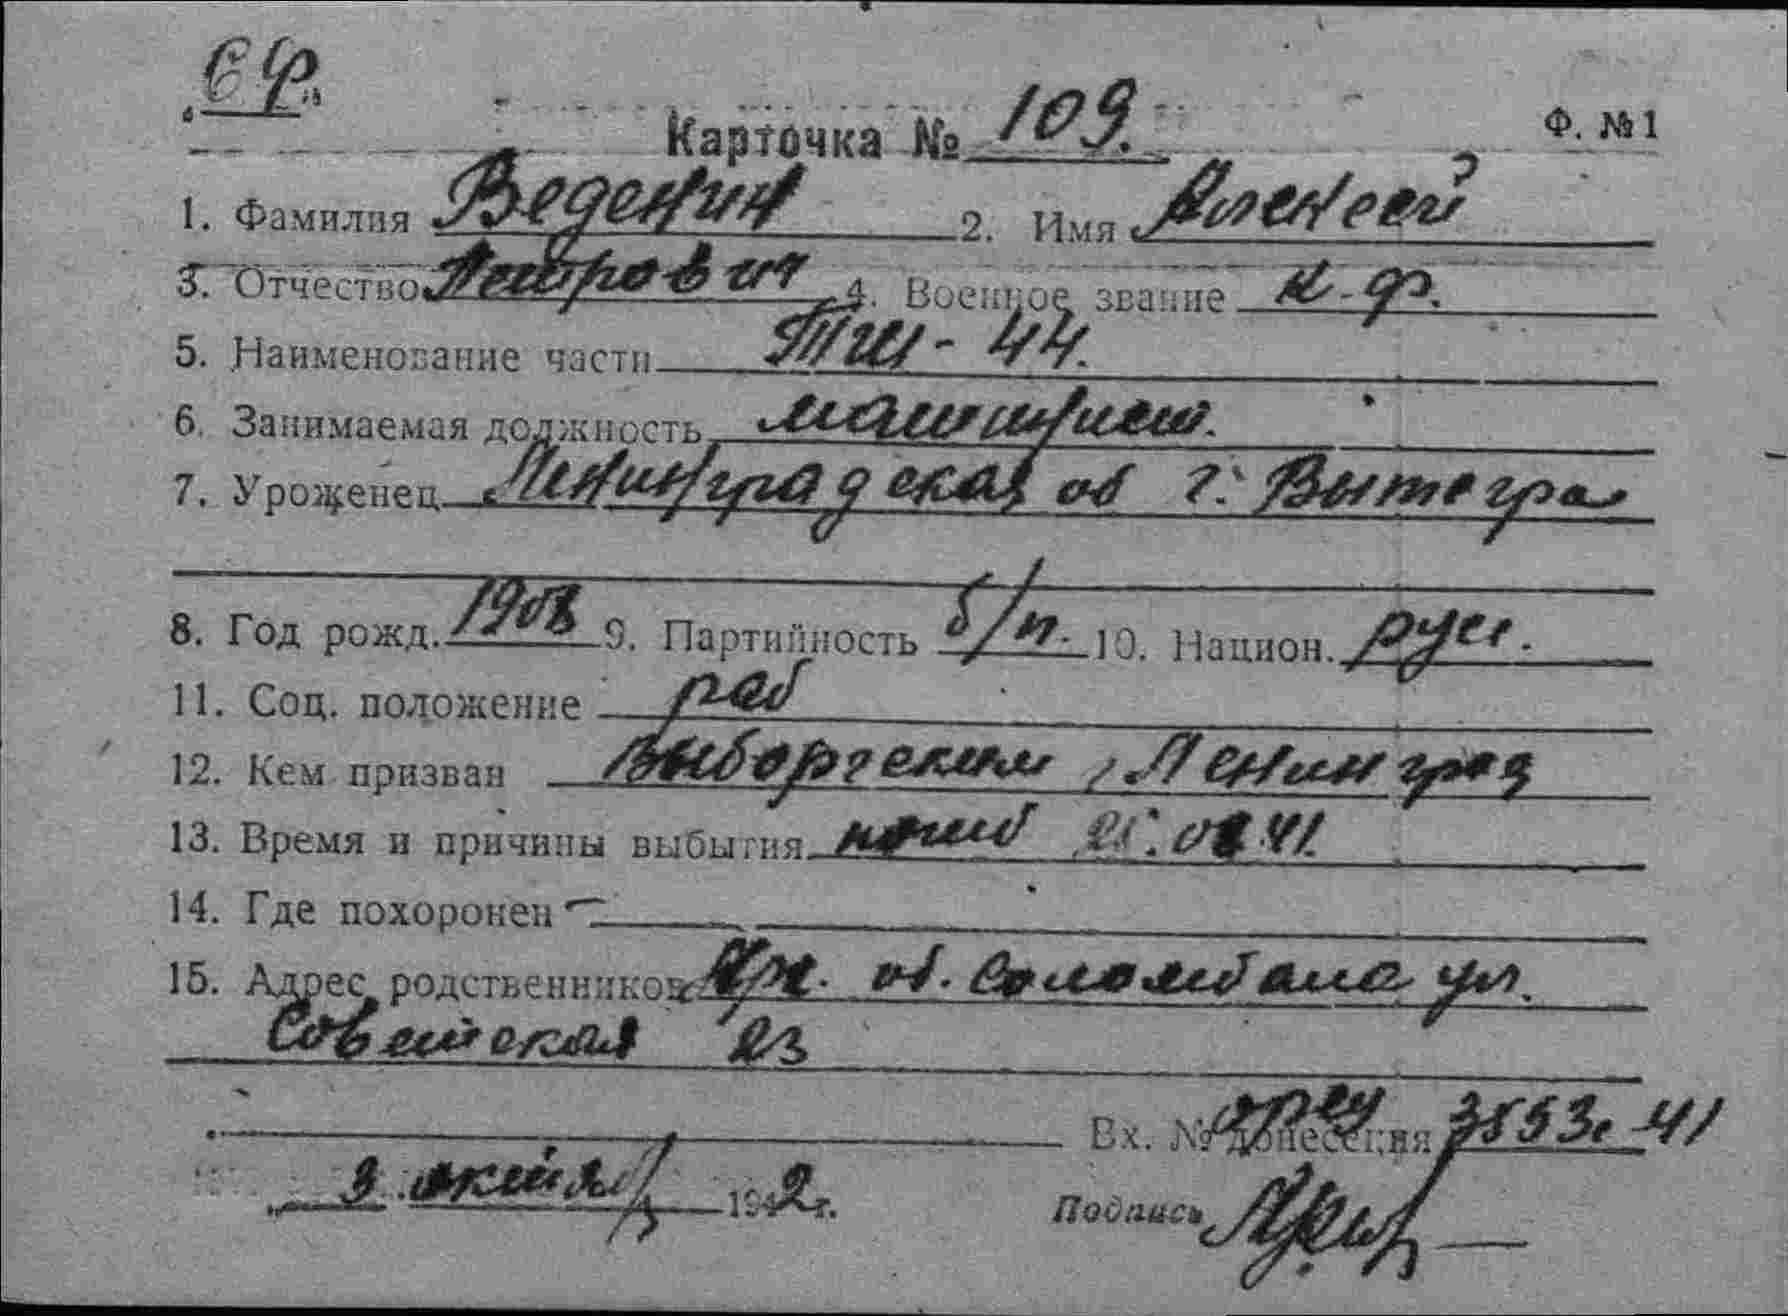 Карточка № 109. Ф. №1
1. Фамилия Веденин 2. Имя Алексей
3. Отчество Петрович 4. Военное звание к-ф.
5. Наименование части ТТЩ-44.
6. Занимаемая должность машинист.
7. Уроженец Ленинградская об г. Вытегра
8. Год рожд. 1908 9. Партийность б/п. 10. Национ. русс.
11. Соц. положение раб
12. Кем призван Выборгским, Ленинград
13. Время и причины выбытия погиб 25.08.41.
14. Где похоронен —
15. Адрес родственников Арх. об. Соломбала ул.
Советская 23
Вх. № донесения 3553с 41
9 октября 1942 г. Подпись